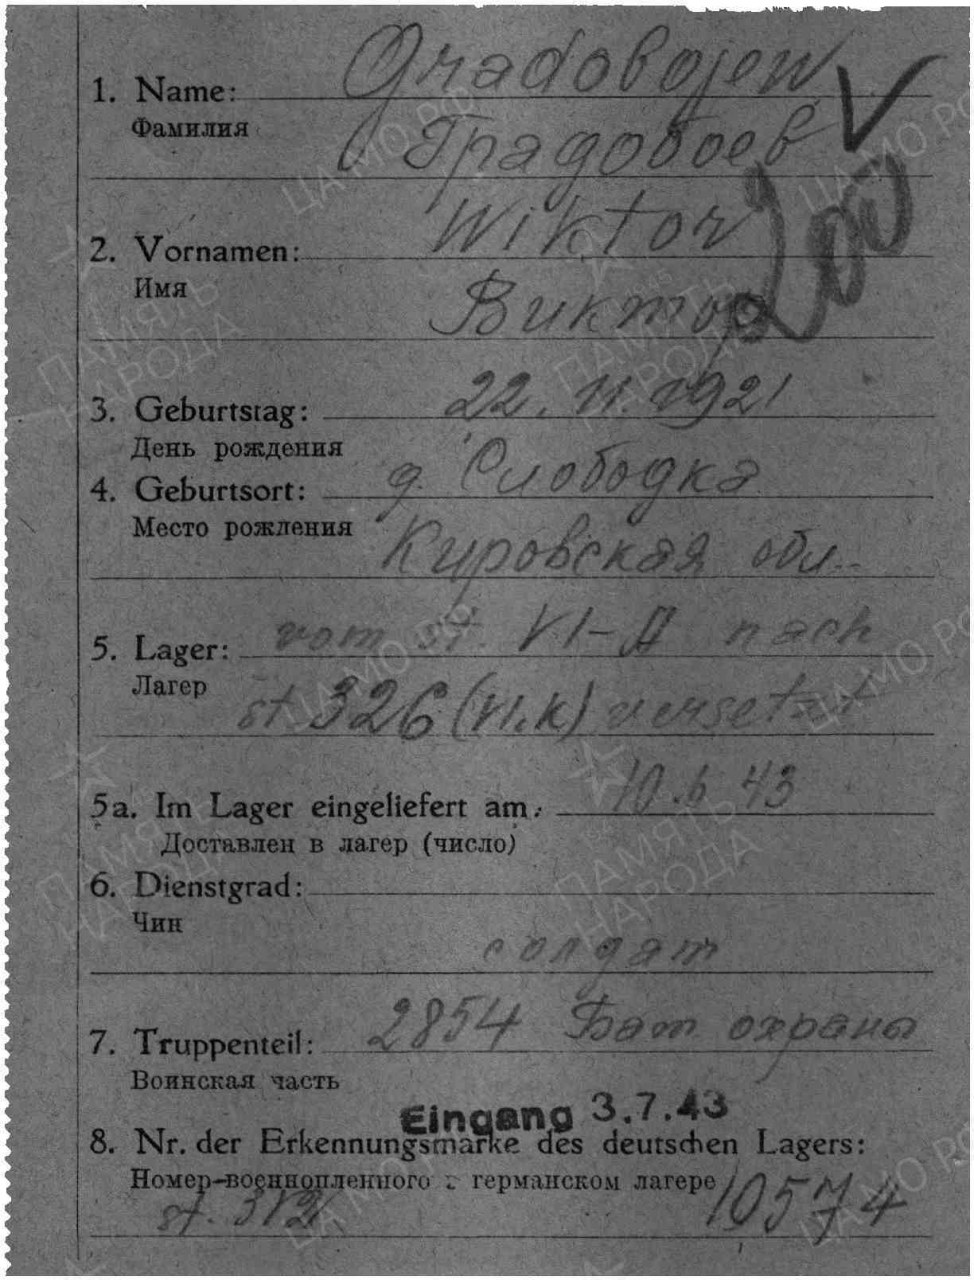 Gradobojew
1. Name:
Фамилия
Градобоев
Wiktor
2. Vornamen:
Имя
Виктор
200
3. Geburtstag: 22.11.1921
День рождения
4. Geburtsort: д. Слободка
Место рождения
Кировская обл.
5. Lager: vom st. VI-D nach
Лагер
st. 326 (VI.K) versetzt
5a. Im Lager eingeliefert am: 10.6 43
Доставлен в лагер (число)
6. Dienstgrad:
Чин
солдат
7. Truppenteil: 2854 Бат охраны
Воинская часть
Eingang 3.7.43
8. Nr. der Erkennungsmarke des deutschen Lagers:
Номер военнопленного в германском лагере
st. 312 10574
ЦА МО РФ
ПАМЯТЬ НАРОДА